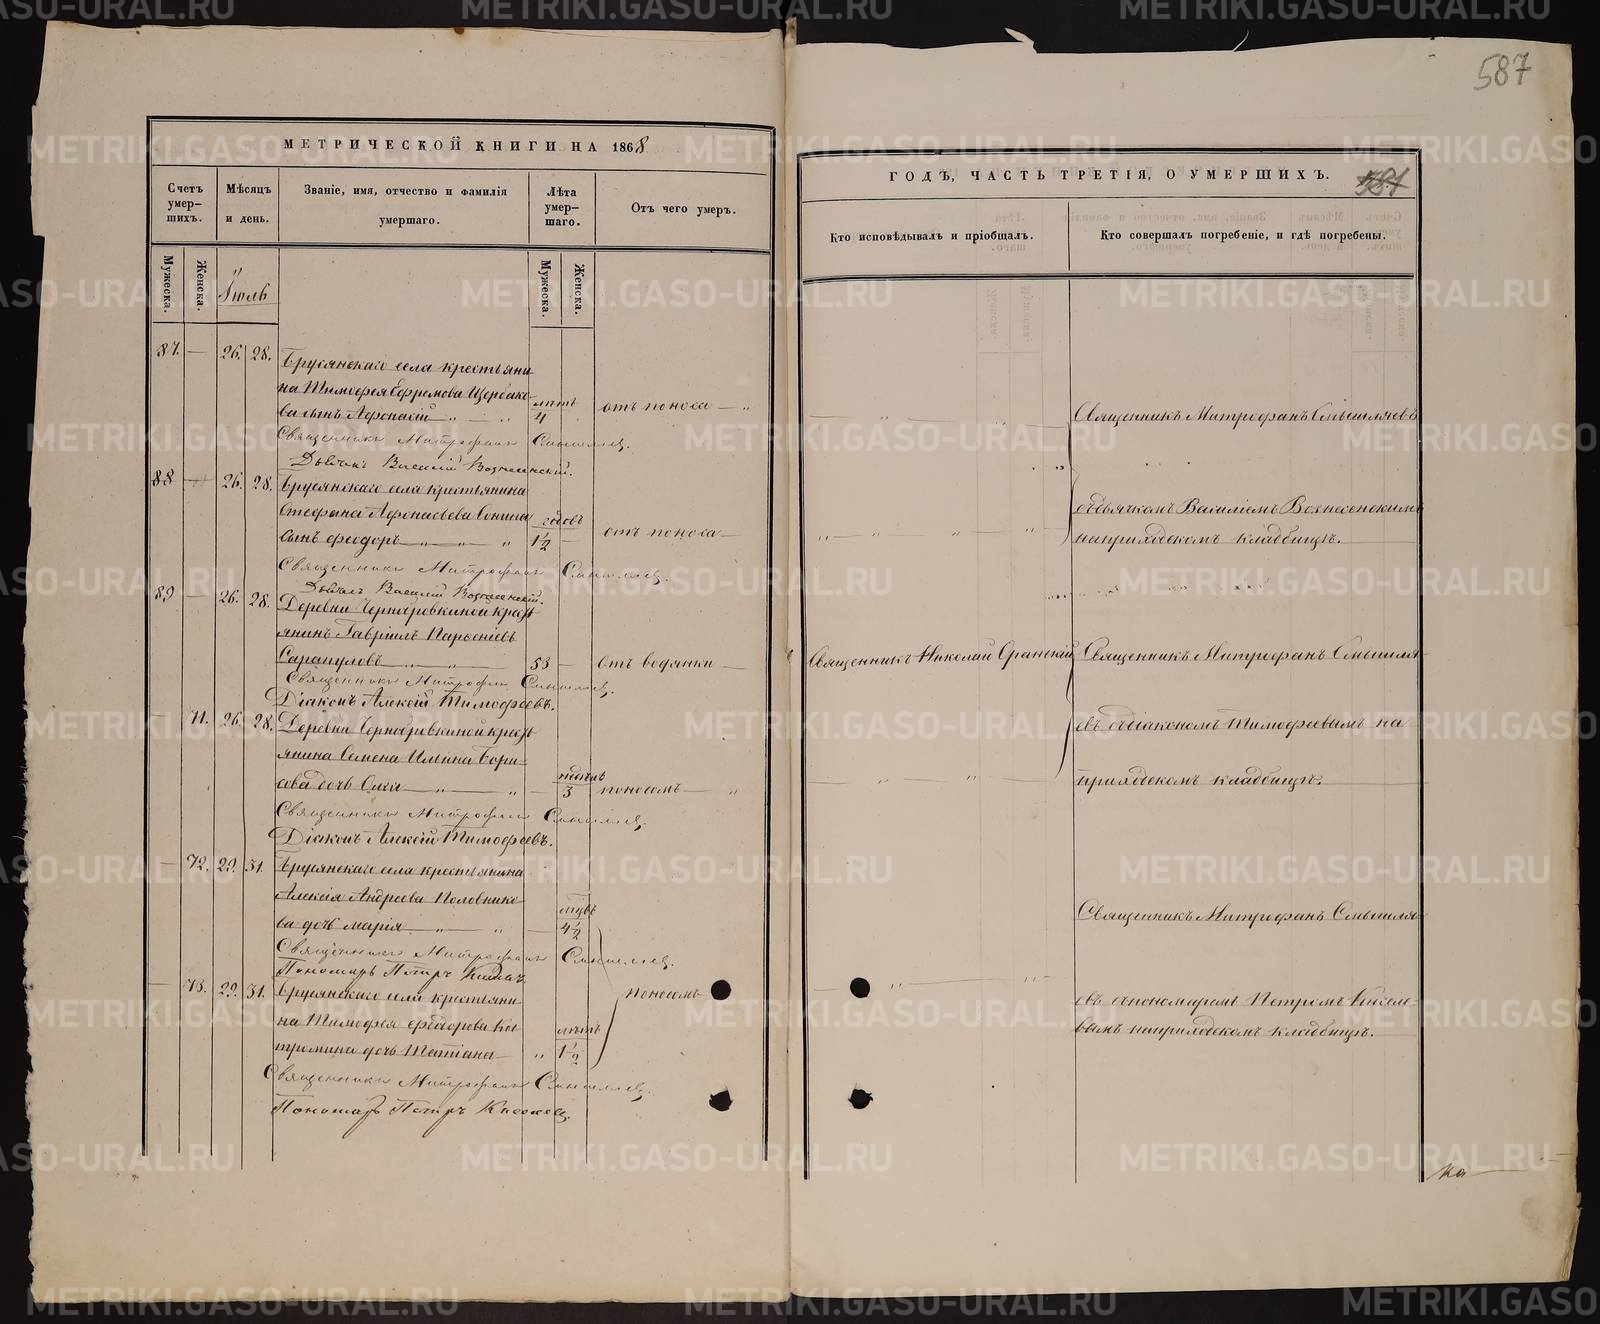 587
МЕТРИЧЕСКОЙ КНИГИ НА 1868
Счетъ умер-шихъ.
Мѣсяцъ и день.
Званіе, имя, отчество и фамилія умершаго.
Лѣта умер-шаго.
Отъ чего умеръ.
Мужеска.
Женска.
Іюль
Мужеска.
Женска.
87. — 26. 28. Брусянскаго села крестьяни
на Тимофея Ефремова Щербако-
ва сынъ Афонасій лѣтъ 4 отъ поноса
Священникъ Митрофанъ
Дьячекъ Василій Вознесенскій.
88 — 26. 28. Брусянскаго села крестьянина
Стефана Афонасьева Сонина годовъ
сынъ Феодоръ 1½ — отъ поноса
Священникъ Митрофанъ
Дьячекъ Василій Вознесенскій.
89 — 26. 28. Деревни крест
янинъ Гавріилъ
Сарапуловъ 53 — отъ водянки
Священникъ Митрофанъ
Діаконъ Алексій Тимофеевъ.
— 71. 26. 28. Деревни крест
янина Семена Ильина Бори-
сова дочь 3 поносомъ
Священникъ Митрофанъ
Діаконъ Алексій Тимофеевъ.
— 72. 29. 31. Брусянскаго села крестьянина
Алексія Андреева Половнико-
ва дочь Марія — 4½
Священникъ Митрофанъ
Пономарь Петръ
— 73. 29. 31. Брусянскаго села крестьяни поносомъ
на Тимофея Феодорова Ко лѣтъ
тромина дочь Татіана 1½
Священникъ Митрофанъ
Пономарь Петръ
ГОДѢ, ЧАСТЬ ТРЕТІЯ, О УМЕРШИХЪ.
581
Кто исповѣдывалъ и пріобщалъ.
Кто совершалъ погребеніе, и гдѣ погребены.
Священникъ Митрофанъ Смышляевъ
съ дьячкомъ Василіемъ Вознесенскимъ
на приходскомъ кладбищѣ.
Священникъ Николай Оранскій
Священникъ Митрофанъ Смышля-
евъ съ діакономъ Тимофеевымъ на
приходскомъ кладбищѣ.
Священникъ Митрофанъ Смышля-
евъ съ пономаремъ Петромъ Кисел-
вымъ на приходскомъ кладбищѣ.
METRIKI.GASO-URAL.RU